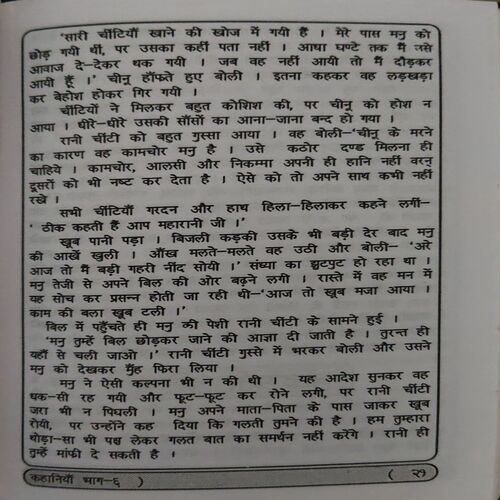 'सारी चींटियाँ खाने की खोज में गयी हैं । मेरे पास मनु को
छोड़ गयी थीं, पर उसका कहीं पता नहीं । आधा घण्टे तक मैं उसे
आवाज दे-देकर थक गयी । जब वह नहीं आयी तो मैं दौड़कर
आयी हूँ ।' चीनू हाँफते हुए बोली । इतना कहकर वह लड़खड़ा
कर बेहोश होकर गिर गयी ।
चींटियों ने मिलकर बहुत कोशिश की, पर चीनू को होश न
आया । धीरे-धीरे उसकी साँसों का आना-जाना बन्द हो गया ।
रानी चींटी को बहुत गुस्सा आया । वह बोली-'चीनू के मरने
का कारण वह कामचोर मनु है । उसे कठोर दण्ड मिलना ही
चाहिये । कामचोर, आलसी और निकम्मा अपनी ही हानि नहीं वरन्
दूसरों को भी नष्ट कर देता है । ऐसे को तो अपने साथ कभी नहीं
रखे ।
सभी चींटियाँ गरदन और हाथ हिला-हिलाकर कहने लगीं-
' ठीक कहती हैं आप महारानी जी ।'
खूब पानी पड़ा । बिजली कड़की उसके भी बड़ी देर बाद मनु
की आखें खुली । आँख मलते-मलते वह उठी और बोली- 'अरे
आज तो मैं बड़ी गहरी नींद सोयी ।' संध्या का झुटपुट हो रहा था ।
मनु तेजी से अपने बिल की ओर बढ़ने लगी । रास्ते में वह मन में
यह सोच कर प्रसन्न होती जा रही थी-'आज तो खूब मजा आया ।
काम की बला खूब टली ।'
बिल में पहुँचते ही मनु की पेशी रानी चींटी के सामने हुई ।
'मनु तुम्हें बिल छोड़कर जाने की आज्ञा दी जाती है । तुरन्त ही
यहाँ से चली जाओ ।' रानी चींटी गुस्से में भरकर बोली और उसने
मनु को देखकर मुँह फिरा लिया ।
मनु ने ऐसी कल्पना भी न की थी । यह आदेश सुनकर वह
धक-सी रह गयी और फूट-फूट कर रोने लगी, पर रानी चींटी
जरा भी न पिघली । मनु अपने माता-पिता के पास जाकर खूब
रोयी, पर उन्होंने कह दिया कि गलती तुमने की है । हम तुम्हारा
थोड़ा-सा भी पक्ष लेकर गलत बात का समर्थन नहीं करेंगे । रानी ही
तुम्हें माँफी दे सकती है ।
कहानियाँ भाग-६ ) ( २१